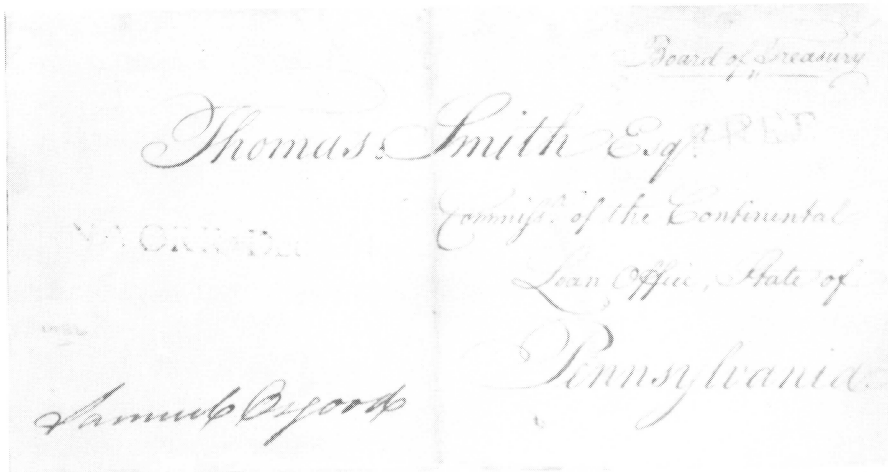 Board of Treasury
Thomas Smith Esqr.
FREE
Commissr. of the Continental
Loan Office, State of
Pennsylvania
Samuel Osgood